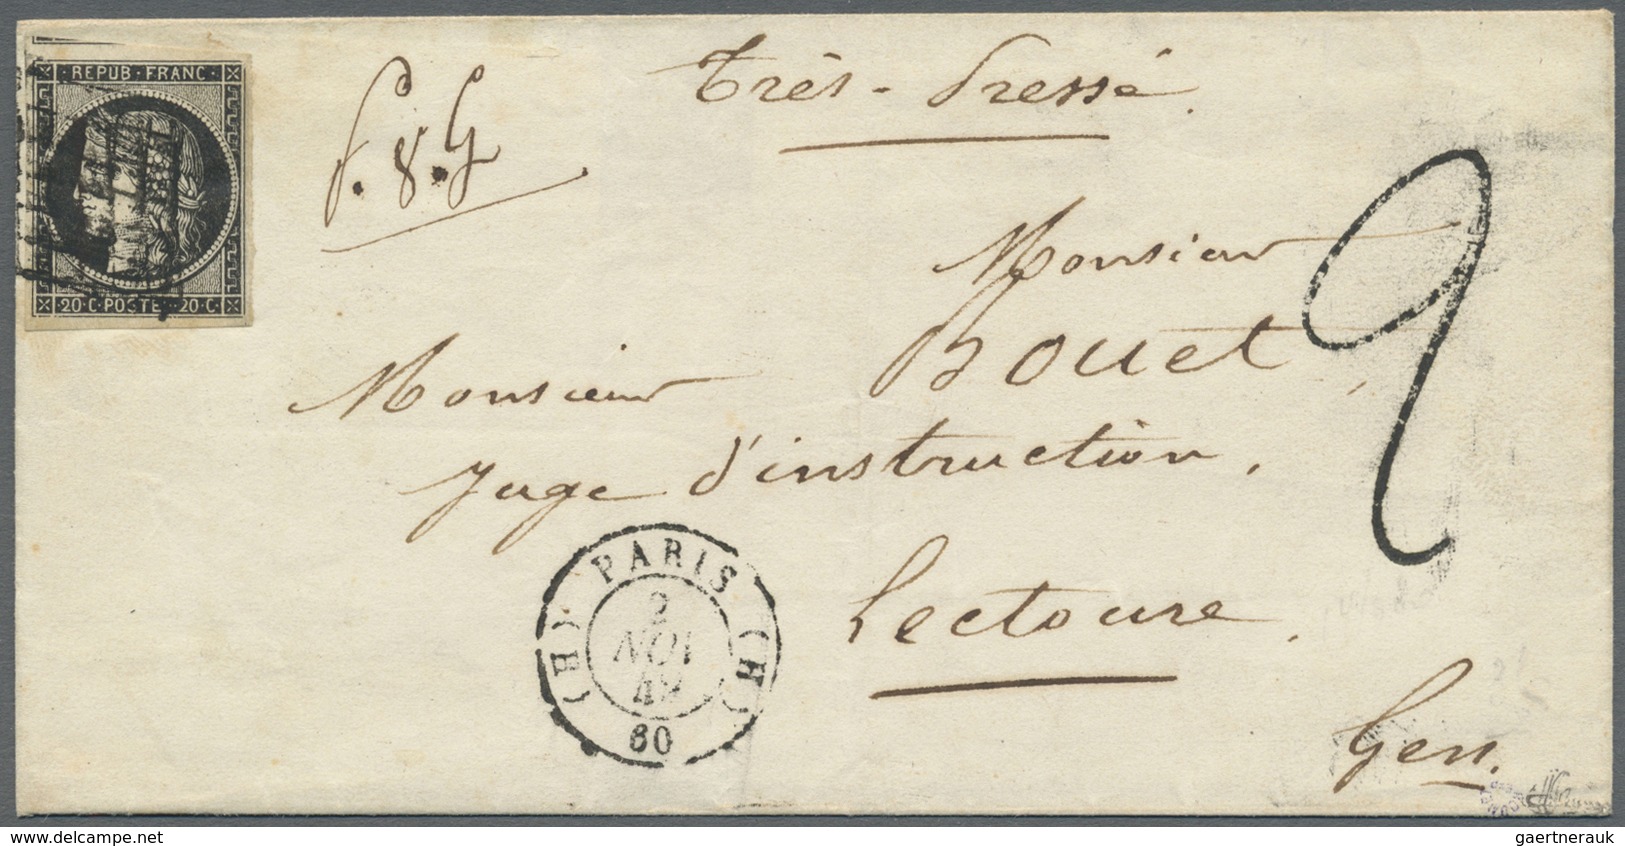 REPUB · FRANC ·
20 · C · POSTE · 20 · C ·
Très-Pressé.
f. 8. G.
Monsieur
Monsieur Bouet,
Juge d'instruction,
Lectoure.
Gers.
PARIS
(H) (H)
2
NOV
49
60
2
delcampe.net
gaertnerauk